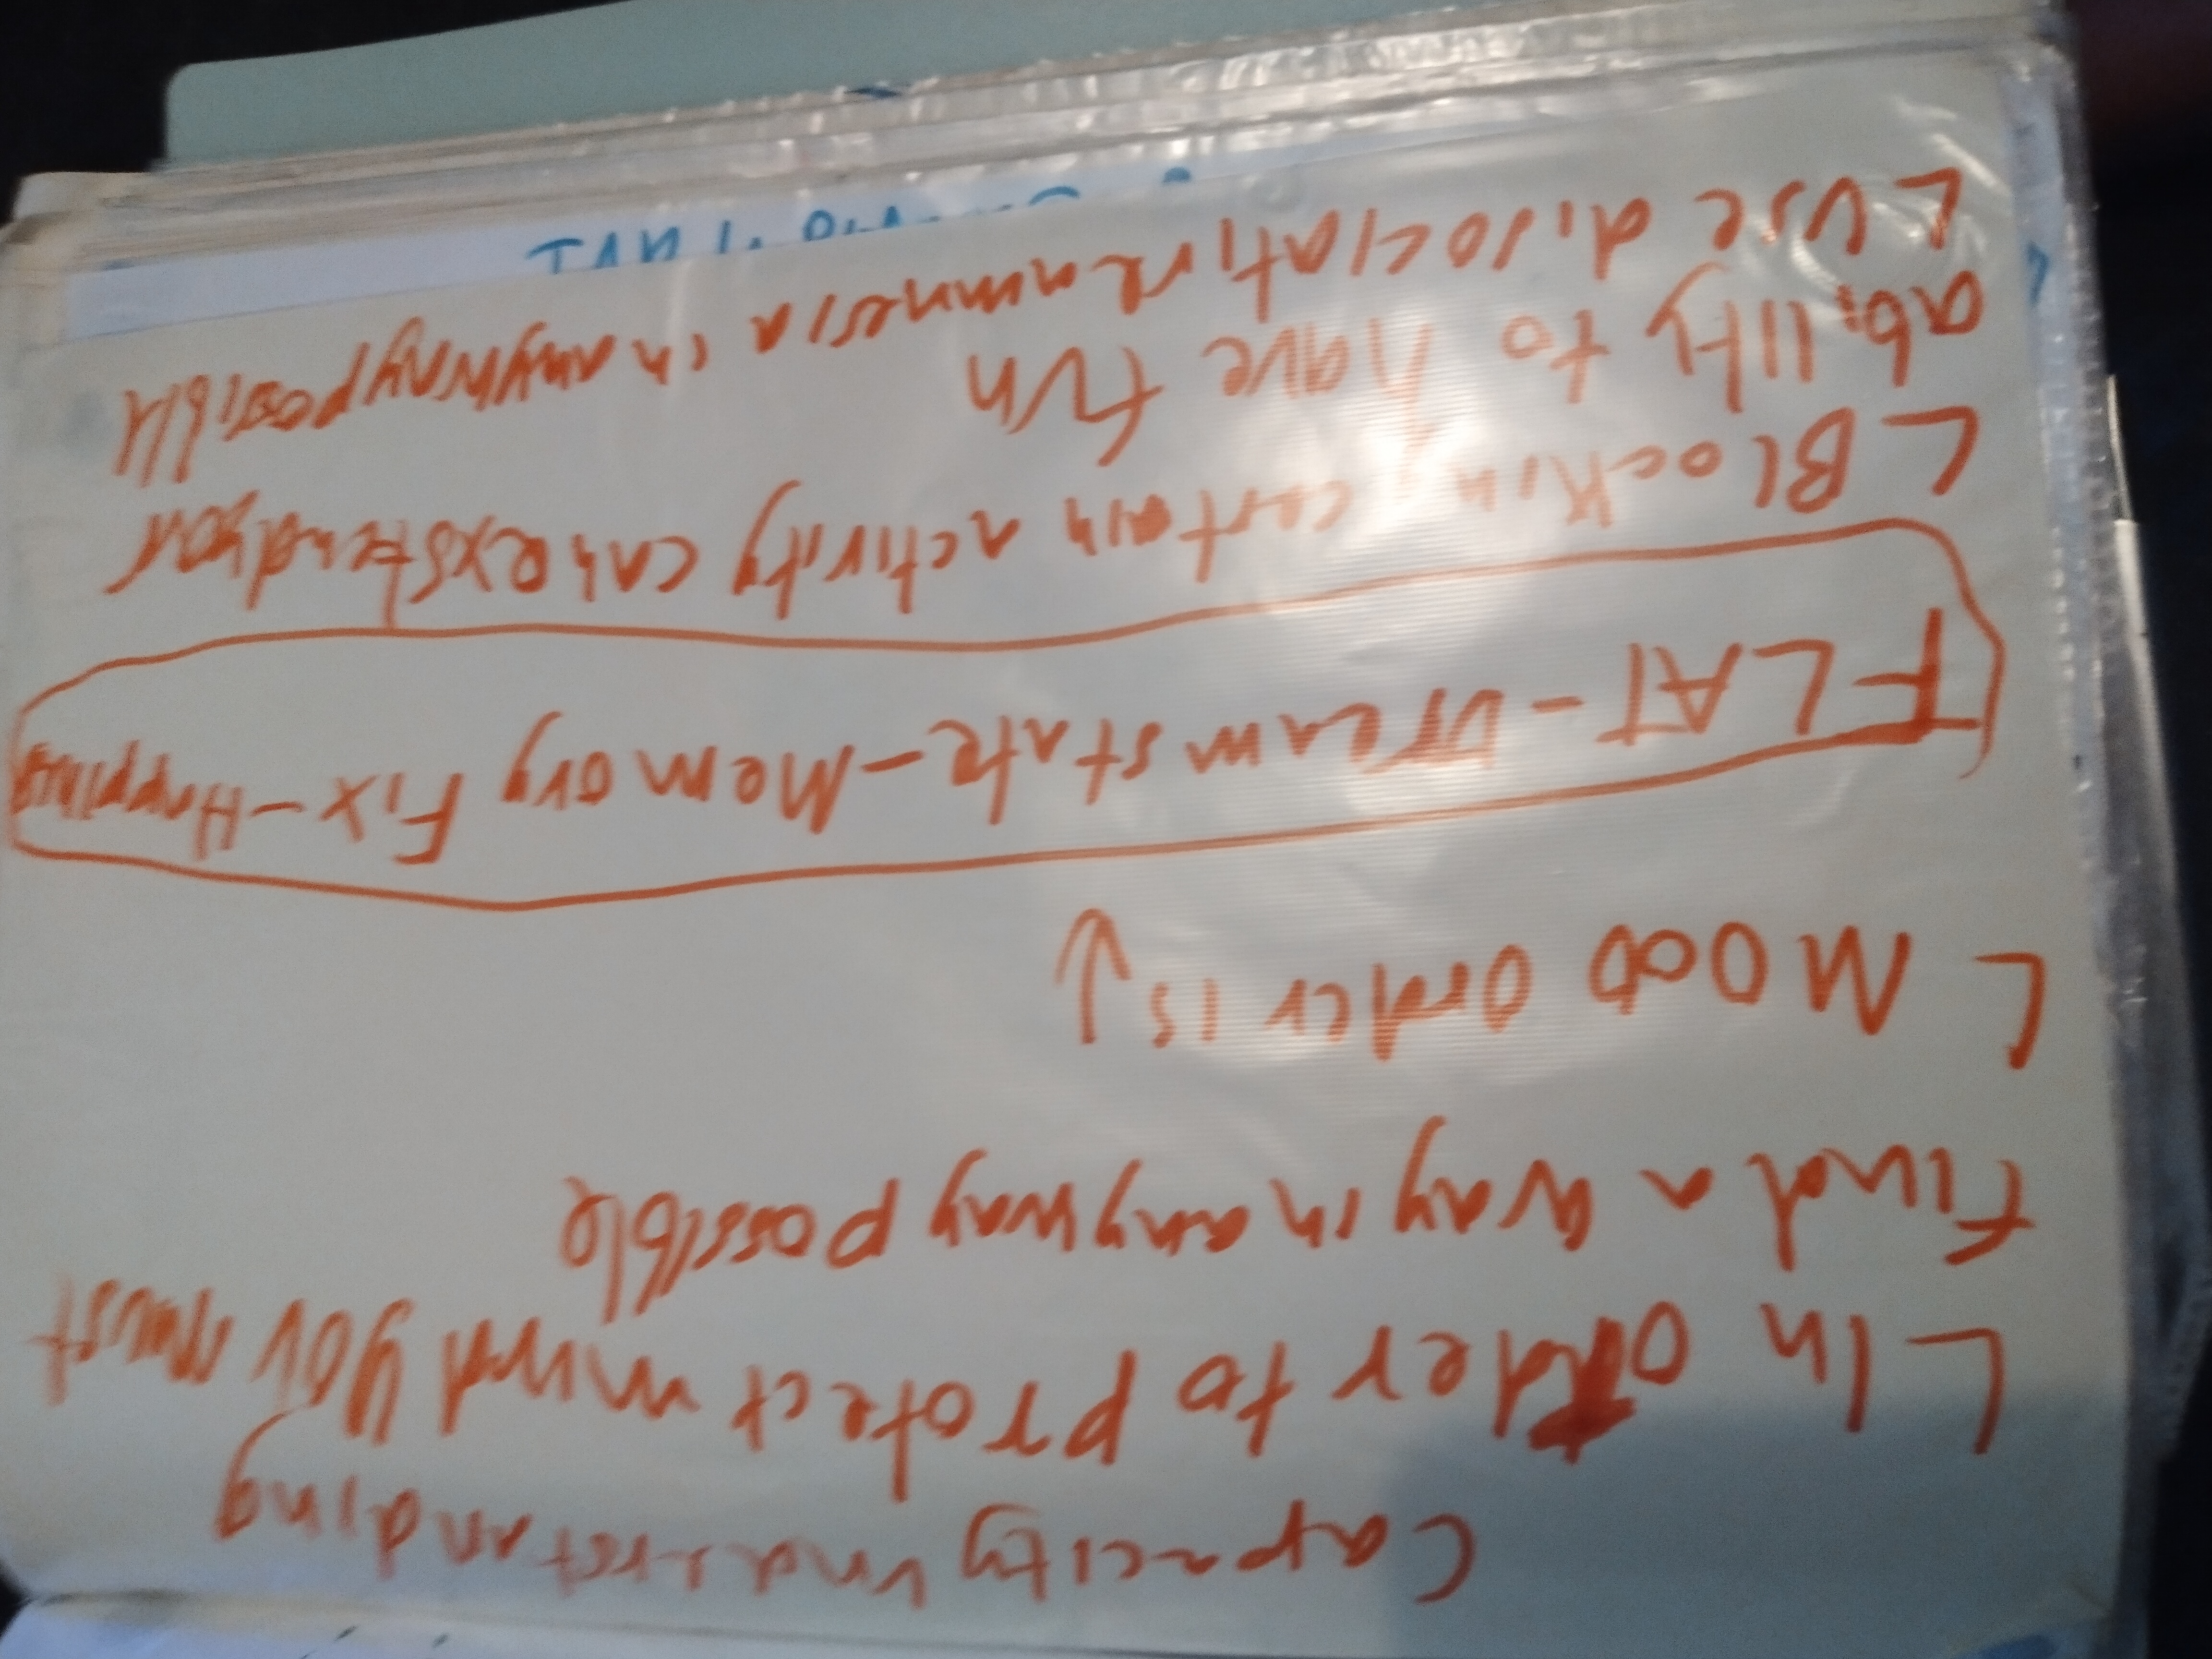 Capacity Understanding
L In order to protect mind you must
find a way in anyway possible
L MOOD order is ↓
FLAT - Dream state - Memory Fix - Happiness
L BLocking certain activity can exstend your
ability to have fun
L Use disociative amnesia in anyway possible